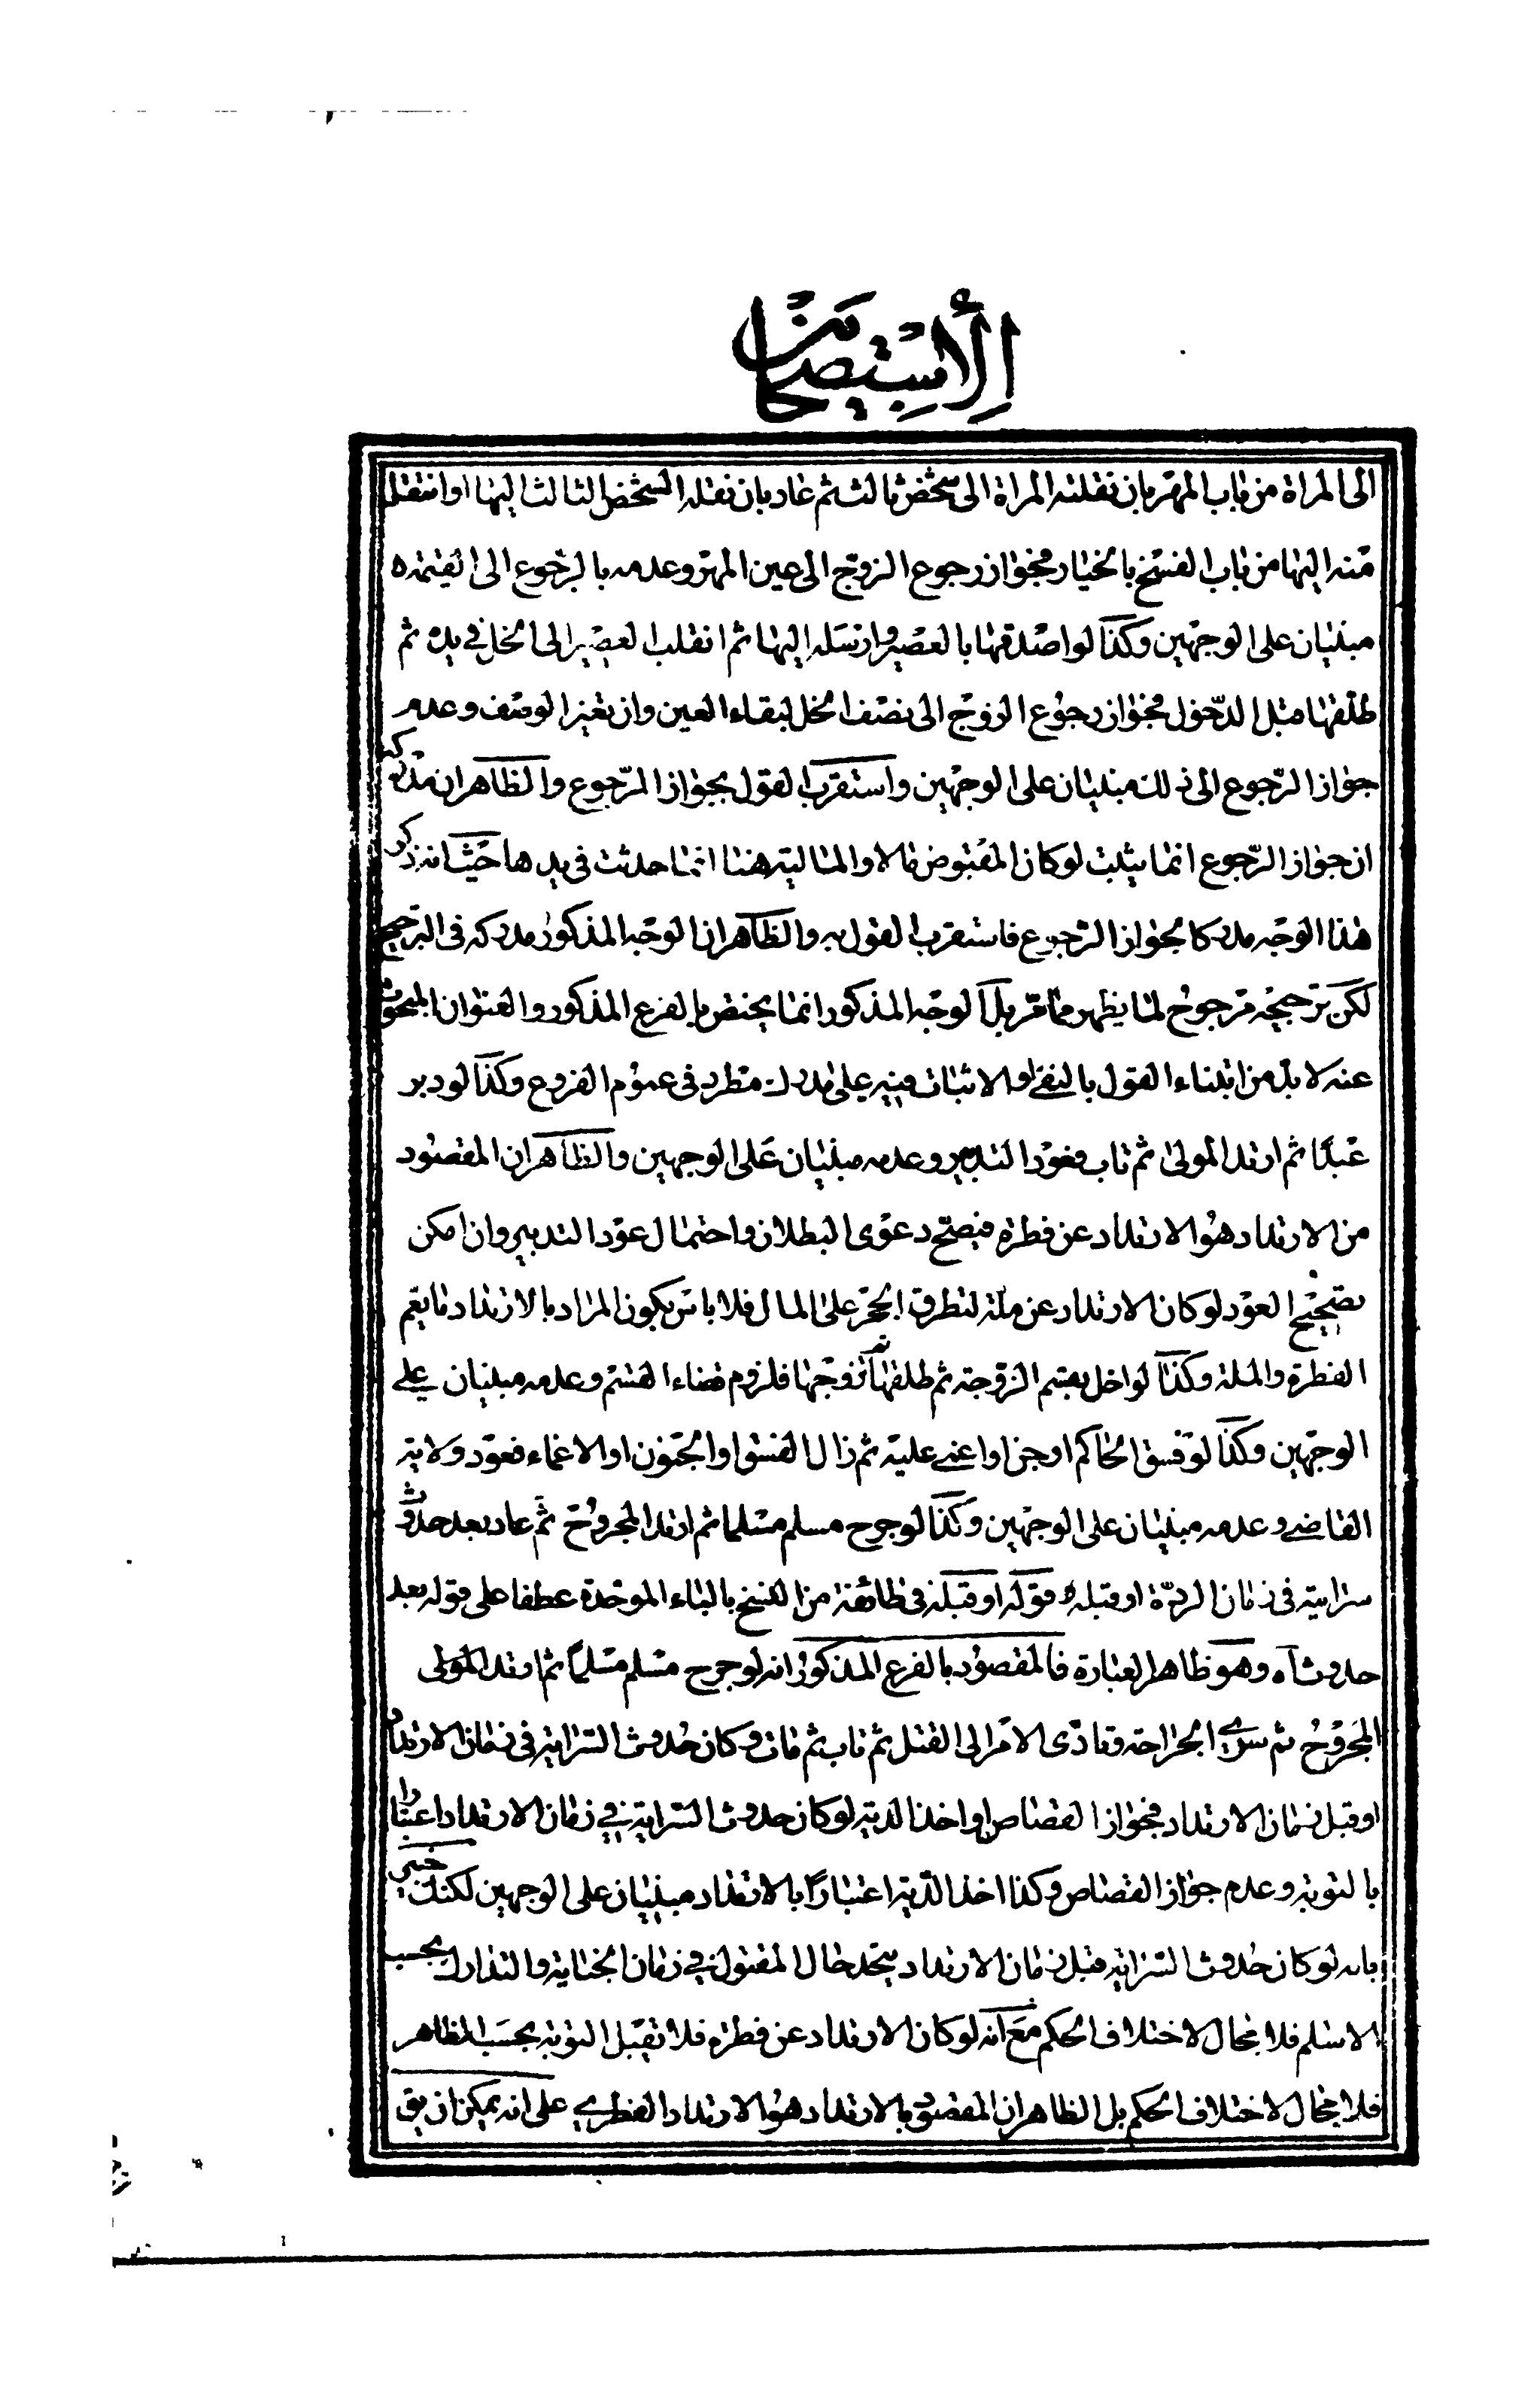 الاستصحاب
الى المراة من باب المهر بان نقلته المراة الى شخص ثالث ثم عاد بان نقله الشخص الثالث اليها او انتقل
منه اليها من باب الفسخ بالخيار فجواز رجوع الزوج الى عين المهر وعدمه بالرجوع الى القيمة
مبنيان على الوجهين وكذا لو اصدقها بالعصير وارسله اليها ثم انقلب العصير الى الخل في يده ثم
طلقها قبل الدخول فجواز رجوع الزوج الى نصف الخل لبقاء العين وان تغير الوصف وعدم
جواز الرجوع الى ذلك مبنيان على الوجهين واستقرب القول بجواز الرجوع والظاهر ان مدركه
ان جواز الرجوع انما يثبت لو كان المقبوض مالا والمالية هنا انما حدثت في يدها حيث انه ذكر
هذا الوجه مدركا بجواز الرجوع فاستقرب القول به والظاهر ان الوجه المذكور مدركه في الترجيح
لكن ترجيحه مرجوح لما يظهر مما مر بل الوجه المذكور انما يختص بالفرع المذكور والعنوان المبحوث
عنه لا بد من ابتناء القول بالنفي او الاثبات فيه على مدرك مطرد في عموم الفروع وكذا لو دبر
عبدا ثم ارتد المولى ثم تاب فعود التدبير وعدمه مبنيان على الوجهين والظاهر ان المقصود
من الارتداد هو الارتداد عن فطرة فيصح دعوى البطلان واحتمال عود التدبير وان امكن
تصحيح العود لو كان الارتداد عن ملة لتطرق الحجر على المال فلا باس بكون المراد بالارتداد ما يعم
الفطرة والملة وكذا لو اخل بقسم الزوجة ثم طلقها ثم تزوجها فلزوم قضاء القسم وعدمه مبنيان على
الوجهين وكذا لو فسق الحاكم او جن او اغمي عليه ثم زال الفسق او الجنون او الاغماء فعود ولاية
القاضي وعدمه مبنيان على الوجهين وكذا لو جرح مسلم مسلما ثم ارتد المجروح ثم عاد بعد حدوث
سراية في زمان الردة او قبله قوله او قبله في طائفة من النسخ بالباء الموحدة عطفا على قوله بعد
حدوث اه وهو ظاهر العبارة فالمقصود بالفرع المذكور انه لو جرح مسلم مسلما ثم ارتد المولى
المجروح ثم سرى الجراحة وتادى الامر الى القتل ثم تاب ثم مات وكان حدوث السراية في زمان الارتداد
او قبل زمان الارتداد فجواز القصاص او اخذ الدية لو كان حدوث السراية في زمان الارتداد اعتبارا
بالتوبة وعدم جواز القصاص وكذا اخذ الدية اعتبارا بالارتداد مبنيان على الوجهين لكنك خبير
بانه لو كان حدوث السراية قبل زمان الارتداد يتحد حال المقتول في زمان الجناية والتدارك بحسب
الاسلام فلا مجال لاختلاف الحكم مع انه لو كان الارتداد عن فطرة فلا تقبل التوبة بحسب الظاهر
فلا مجال لاختلاف الحكم بل الظاهر ان المقصود بالارتداد هو الارتداد الفطري على انه يمكن ان يق